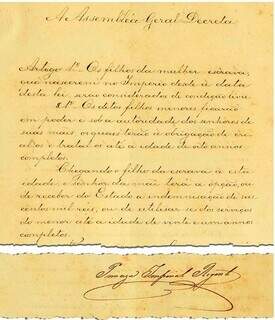 A Assembléa Geral Decreta
Artigo 1º. Os filhos da mulher escrava,
que nascerem no Imperio desde a data
desta lei, serão considerados de condição livre.
§ 1º. Os ditos filhos menores ficarão
em poder e sob a autoridade dos senhores de
suas mães os quaes terão a obrigação de cre-
al-os e tratal-os até a idade de oito annos
completos.
Chegando o filho da escrava a esta
idade, o senhor da mãe terá a opção, ou
de receber do Estado a indemnisação de seis
centos mil reis, ou de utilisar-se dos serviços
do menor até a idade de vinte e um annos
completos.
Princeza Imperial Regente